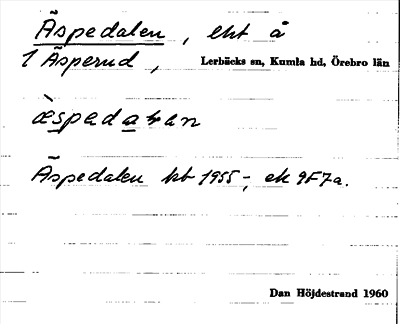 Äspedalen, ekt å
1 Äsperud, Lerbäcks sn, Kumla hd, Örebro län
æ̀spedaƚan
Äspedalen kt 1955-, ek 9F7a.
Dan Höjdestrand 1960